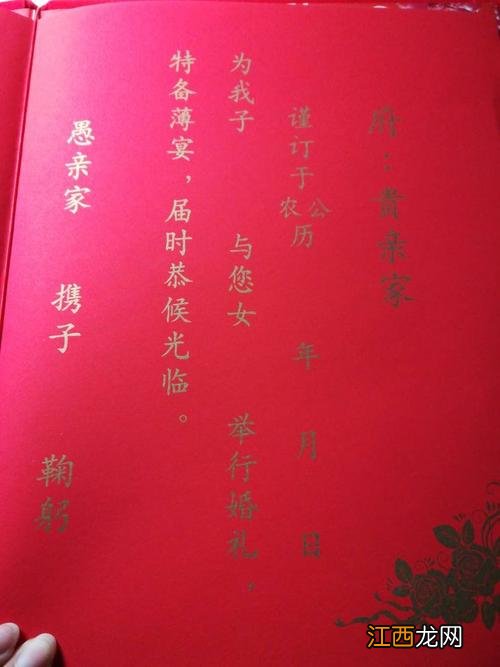 府：贵亲家
谨订于公历 年 月 日
农
为我子 与您女 举行婚礼．
特备薄宴，届时恭候光临。
愚亲家 携子 鞠躬
江西龙网
jxcn.cn